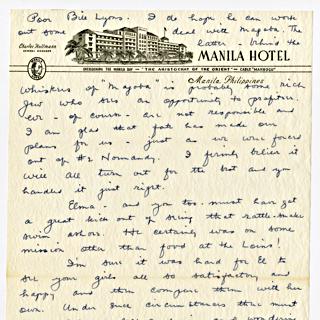 Poor Bill Lyons. I do hope he can work
out some "        deal with Magoba. The
latter - behind the
Charles Hollmann
GENERAL MANAGER
MANILA HOTEL
OVERLOOKING THE MANILA BAY — "THE ARISTOCRAT OF THE ORIENT" — CABLE "MANHOTEL"
Manila Philippines
whiskers of "Magoba" is probably some rich
Jew who sees an opportunity to profiteer.
We - of course - are not responsible and
I am glad that fate has made our
plans for us - just as we were forced
out of #2 Normandy. I firmly believe it
will all turn out for the best and you
handled it just right.
Elma - and you too - must have got
a great kick out of seeing that rattle-snake
swim ashore. He certainly was on some
mission other than food at the Lains!
I'm sure it was hard for El to
see you girls all so satisfactory and
happy and then compare them with her
own. Under such circumstances there must
and wondering